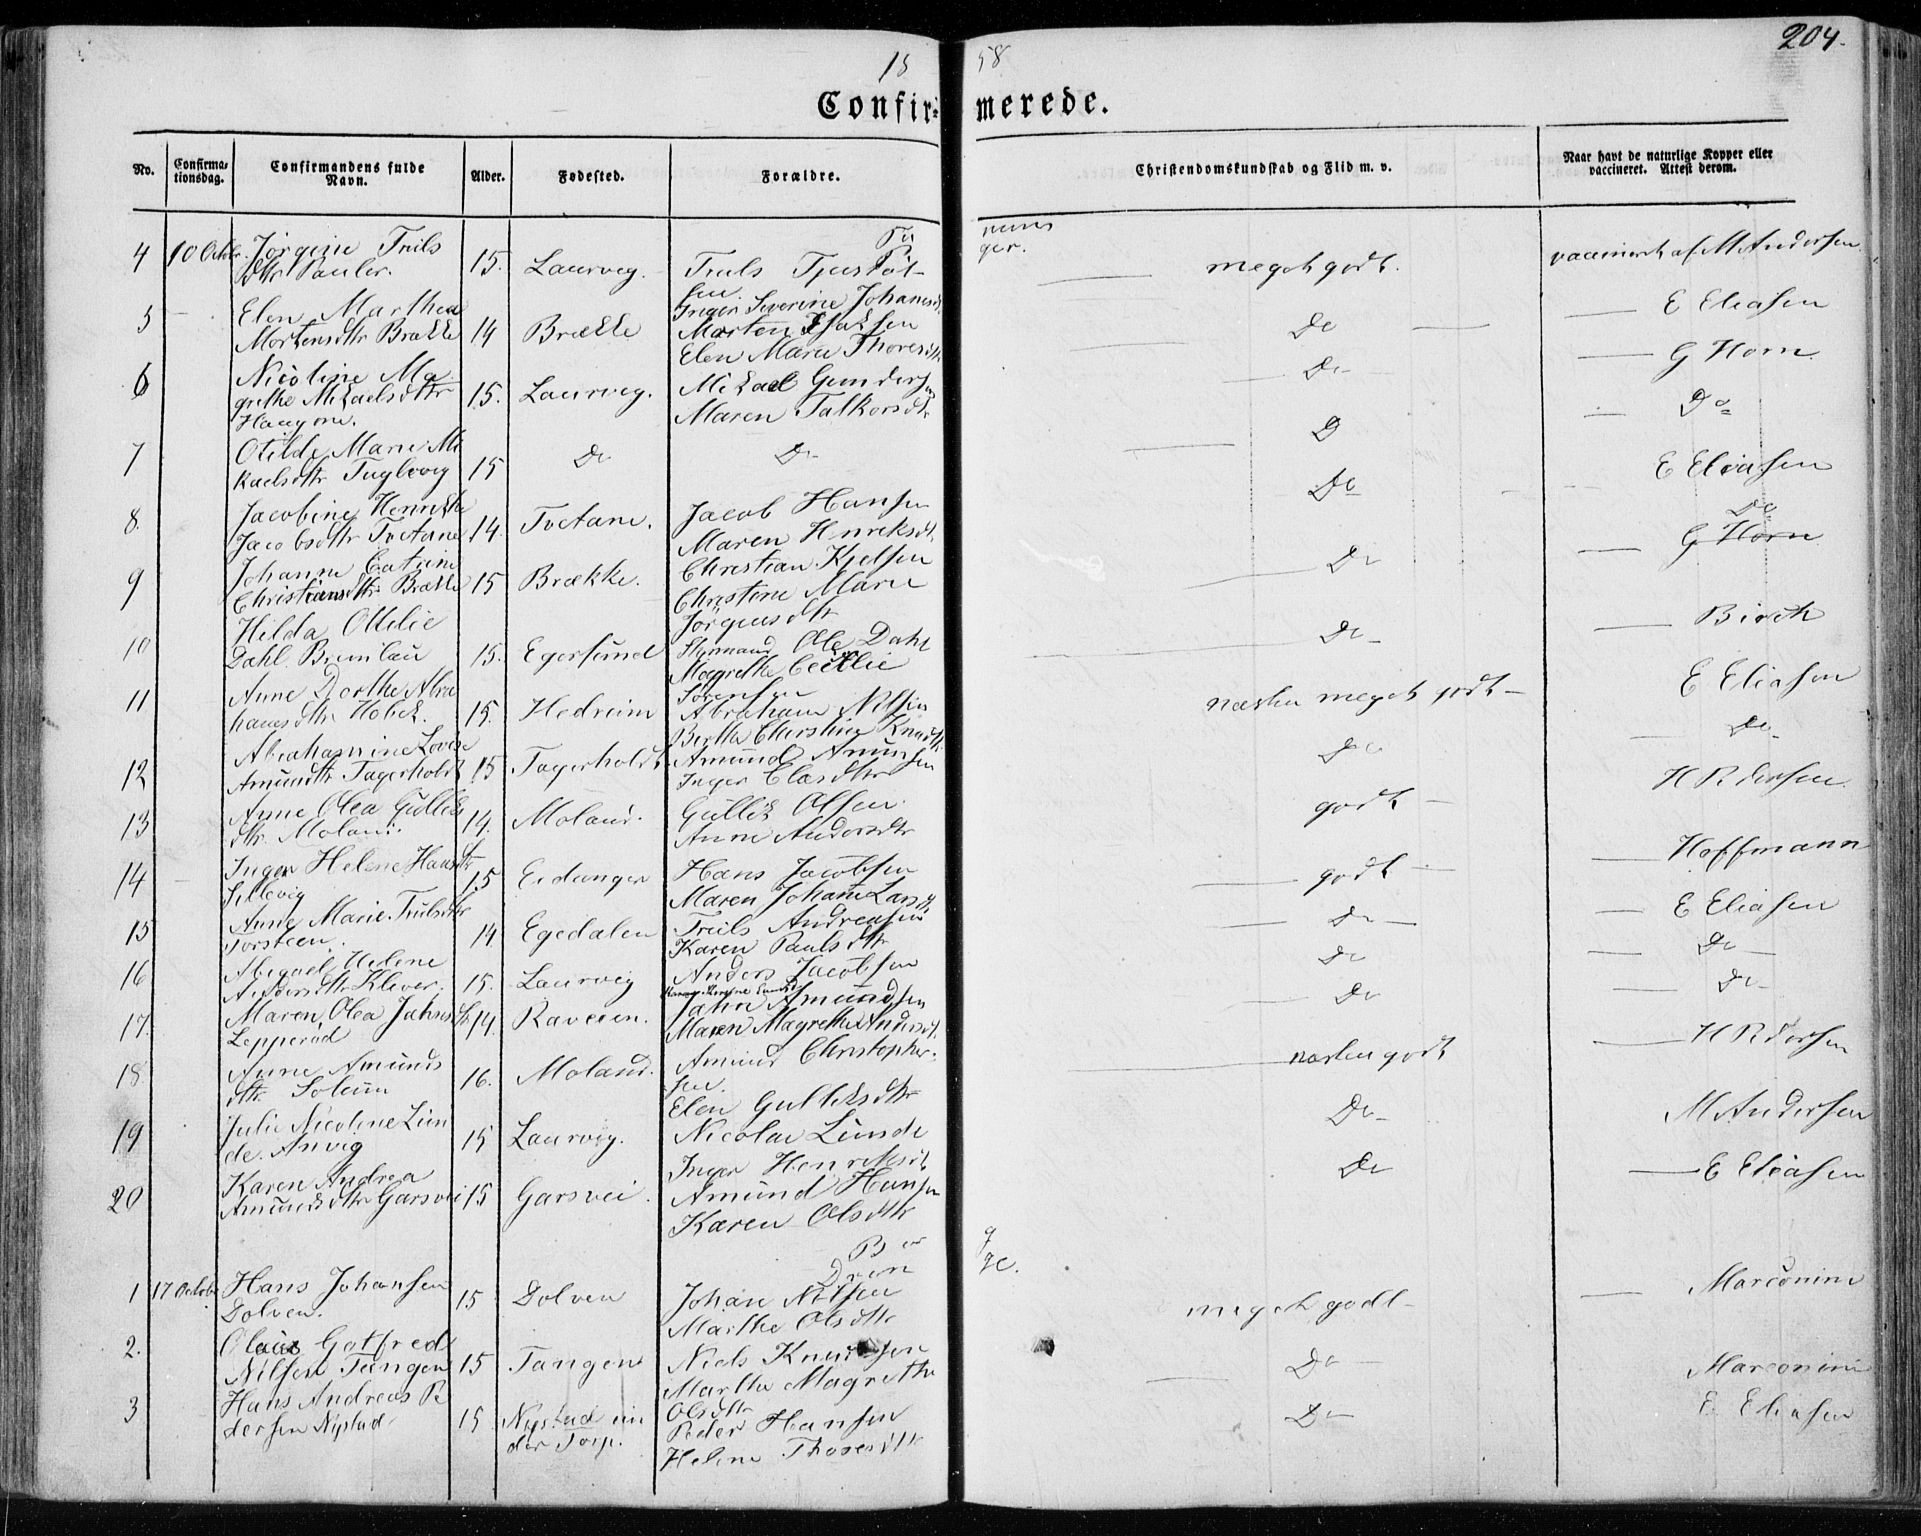 204.
18 58
Confir- merede.
No. Confirma-tionsdag. Confirmandens fulde Navn. Alder. Fødested. Forældre. Christendomskundskab og Flid m. v. Naar havt de naturlige Kopper eller vaccineret. Attest derom.
Pi
ger.
4 10 Octobr. Jørgine Truls
dtr Pauler. 15. Laurvig. Truls Tjøstöl
sen meget godt. vaccineret af M Andersen
Inger Severine Johannesd.
5 Elen Marthea
Mortensdtr Brække 14 Brække Morten Isaksen
Elen Marie Thoresdtr De E Eliasen
6 Nicoline Ma
grethe Mikaelsdtr
Haugene. 15. Laurvig. Mikael Gundersen
Maren Falkorsdtr De G Horn
7 Otilde Marie Mi
kaelsdtr Fuglevig 15 Do Do D Do
8. Jacobine Henrikke
Jacobsdtr Tvetene 14. Tvetene. Jacob Hansen
Maren Henriksdt. De E Eliasen
9 Johanne Catrine
Christiansdtr Brække 15 Brække. Christian Kjelsen
Christine Marie
Jörgensdtr De De
G Horn
10 Hilda Ottilie
Dahl. 15. Egersund Styrmand Ole Dahl
Magrethe Cecilie
Sörensen De Birch
11 Anne Dorthe Abra
hamsdtr Hobek. 15. Hedrum Abraham Nilsen
Berthe Christine Knudsdtr næsten meget godt E Eliasen
12 Abrahamine Lovise
Amundtr Fagerholdt 15 Fagerholdt Amund Amunsen
Inger Elasdtr De De
13 Anne Olea Gulliks
dtr. Moland. 14. Moland. Gullik Olsen
Anne Andersdtr godt H Pedersen
14 Inger Helene Hansdtr
Sillevig 15 Eidanger Hans Jacobsen
Maren Johanne Larsdt. godt Hoffmann
15 Anne Marie Trulsdtr
Torsteen. 14 Egedalen Truls Andreasen
Karen Paulsdtr De E Eliasen
16 Abigael Helene
Andersdtr Klever. 15. Laurvig Anders Jacobsen De De
17. Maren Olea Jahnsdtr
Lepperød 14. Raveien. Jahn Amundsen
Maren Magrethe Andersdt. De De
18 Anne Amunds
dtr Soleim 16. Moland. Amund Christopher
sen.
Elen Gulliksdtr næsten godt H Pedersen
19 Julie Nicoline Lun
de. Anvig 15 Laurvig. Nicolai Lunde
Inger Henriksdt De M Andersen
20 Karen Andrea
Amundsdtr Garsvei 15 Garsvei. Amund Hansen
Karen Olsdtr De E Eliasen
Dren
ge.
1 17 Octobr Hans Johansen
Dolven. 15 Dolven Johan Nilsen
Marthe Olsdtr meget godt Marconini
2. Olaus Gotfred
Nilsen Tangen 15 Tangen Niels Knudsen
Marthe Magrethe
Olsdtr De Marconini
3 Hans Andreas Pe
dersen Nystad 15 Nystad un
der Torp. Peder Hansen
Helene Thoresdtr De E Eliasen